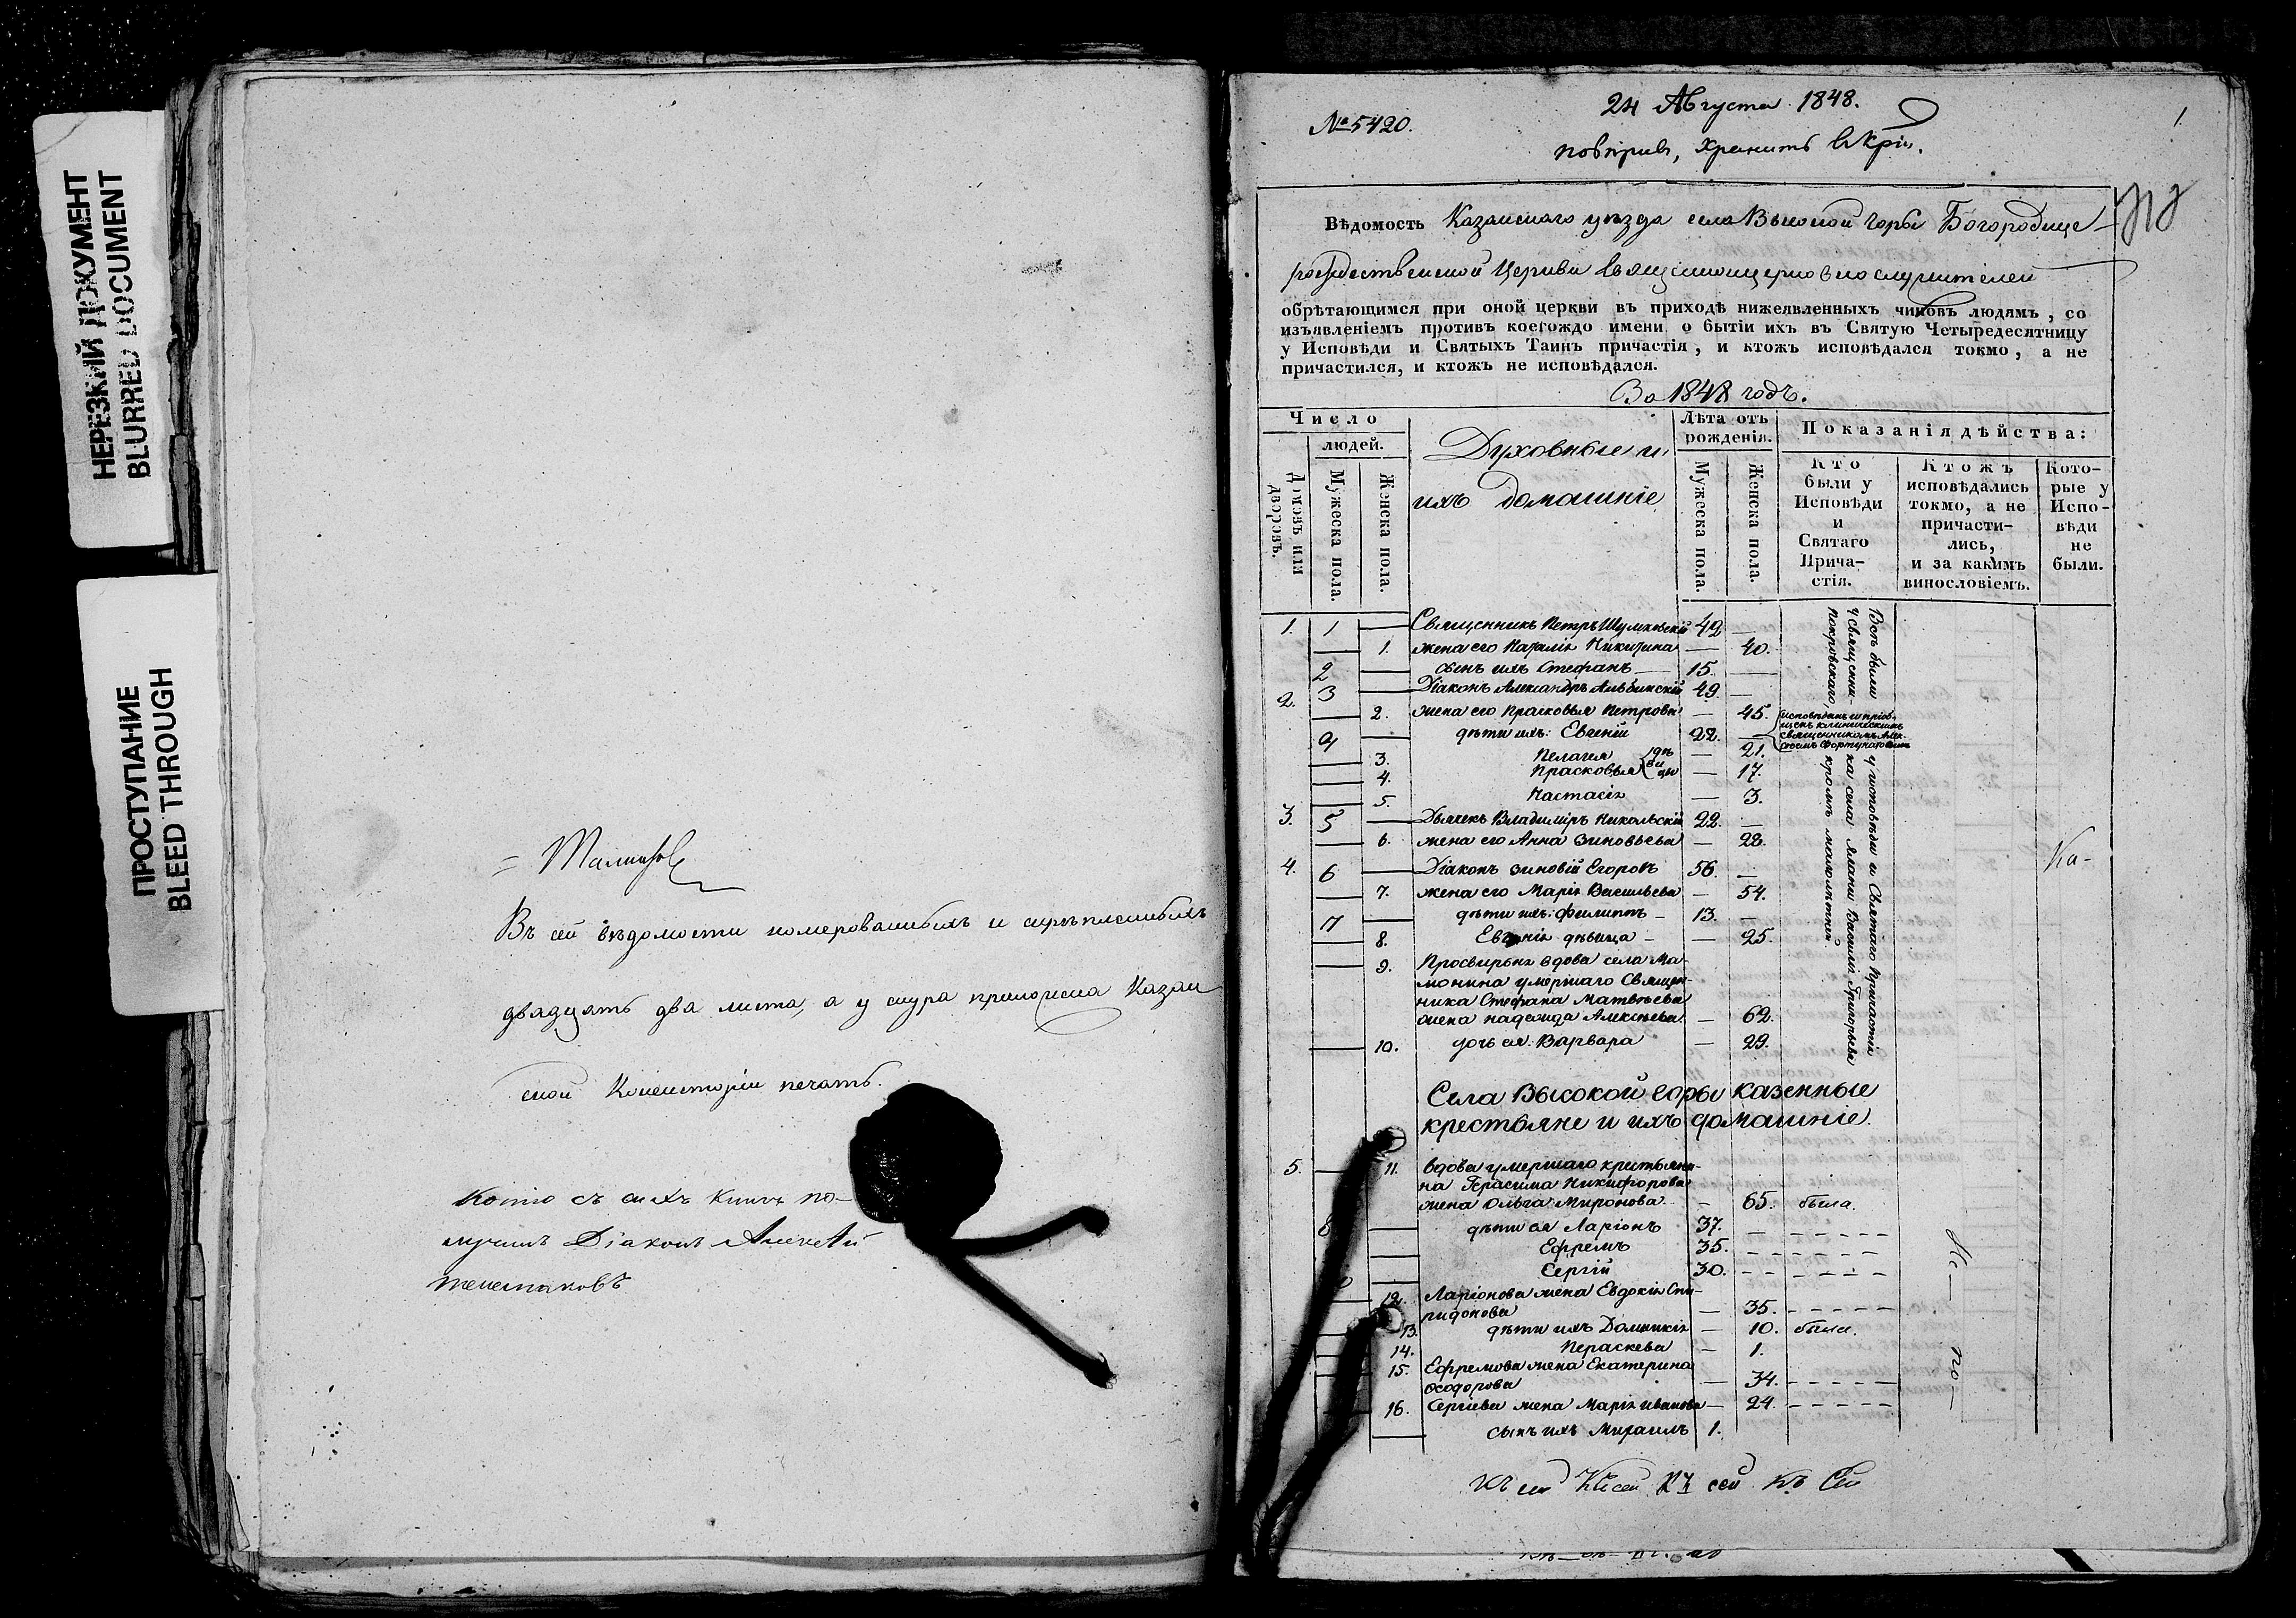 НЕРЕЗКИЙ ДОКУМЕНТ
BLURRED DOCUMENT
ПРОСТУПАНИЕ
BLEED THROUGH
Въ сей вѣдомости номерованныхъ и скрѣпленныхъ
двадцать два листа, а у шнура приложена Казан
ской Консисторіи печать.
Копію съ сихъ книгъ по-
лучилъ Діаконъ Алексѣй
24 Августа 1848.
№ 5420.
1
повѣрив, хранить
Вѣдомость Казанскаго уѣзда села Высокой горы Богородице-
рождественской Церкви Священноцерковнослужителей
обрѣтающимся при оной церкви въ приходѣ нижеявленныхъ чиновъ людямъ, со
изъявленіемъ противъ коегождо имени о бытіи ихъ въ Святую Четыредесятницу
у Исповѣди и Святыхъ Таинъ причастія, и ктожъ исповѣдался токмо, а не
причастился, и ктожъ не исповѣдался.
За 1848 годъ.
Число
людей.
Домовъ или дворовъ.
Мужеска пола.
Женска пола.
Духовные и
ихъ домашніе
Лѣта отъ
рожденія.
Мужеска пола.
Женска пола.
Показанія дѣйства:
Кто
были у
Исповѣди
и
Святаго
Прича-
стія.
Ктожъ
исповѣдались
токмо, а не
причасти-
лись,
и за какимъ
винословіемъ.
Кото-
рые у
Испо-
вѣди
не
были.
1. 1 — Священникъ Петръ 42 —
— 1. жена его Наталія Никитина — 40.
2 — сынъ ихъ Стефанъ 15. —
2. 3 — Діаконъ Александръ Альбинскій 49. —
— 2. жена его Прасковья Петрова — 45.
4 — дѣти ихъ: Евгеній 22. —
— 3. Пелагея — 21.
— 4. Прасковья дѣвицы — 17.
— 5. Настасія — 3.
3. 5 — Дьячекъ Владиміръ Никольскій 22. —
— 6. жена его Анна Зиновьева — 28.
4. 6 — Діаконъ Зиновій Егоровъ 56. —
— 7. жена его Марія Васильева — 54.
7 — дѣти ихъ: Филиппъ — 13. —
— 8. Евгенія дѣвица — — 25.
— 9. Просвирня вдова села Ма-
монина умершаго Священ-
ника Стефана Матвѣева
жена Надежда Алексѣева — 62.
— 10. дочь ея: Варвара — 29.
Всѣ были у исповѣди и Святаго Причастія
у священника села Ямани Василія Григорьева
Покровскаго, кромѣ малолѣтней
исповѣданъ и пріоб-
щенъ клиническимъ
священникомъ Алек-
сѣемъ Фортунатовымъ
Ка-
Села Высокой горы казенные
крестьяне и ихъ домашніе.
5. — 11. Вдова умершаго крестьяни-
на Герасима Никифорова
жена Ольга Миронова — 65. была.
8 — дѣти ея Ларіонъ 37. —
— Ефремъ 35. —
— Сергій 30. —
— 12. Ларіонова жена Евдокія Спи-
ридонова — 35.
— 13. дѣти ихъ Доминикія — 10. была.
— 14. Пераскева — 1.
— 15. Ефремова жена Екатерина
Ѳеодорова — 34.
— 16. Сергіева жена Марія Иванова — 24.
— сынъ ихъ Михаилъ 1.
по-
къ сей Къ сей Къ сей